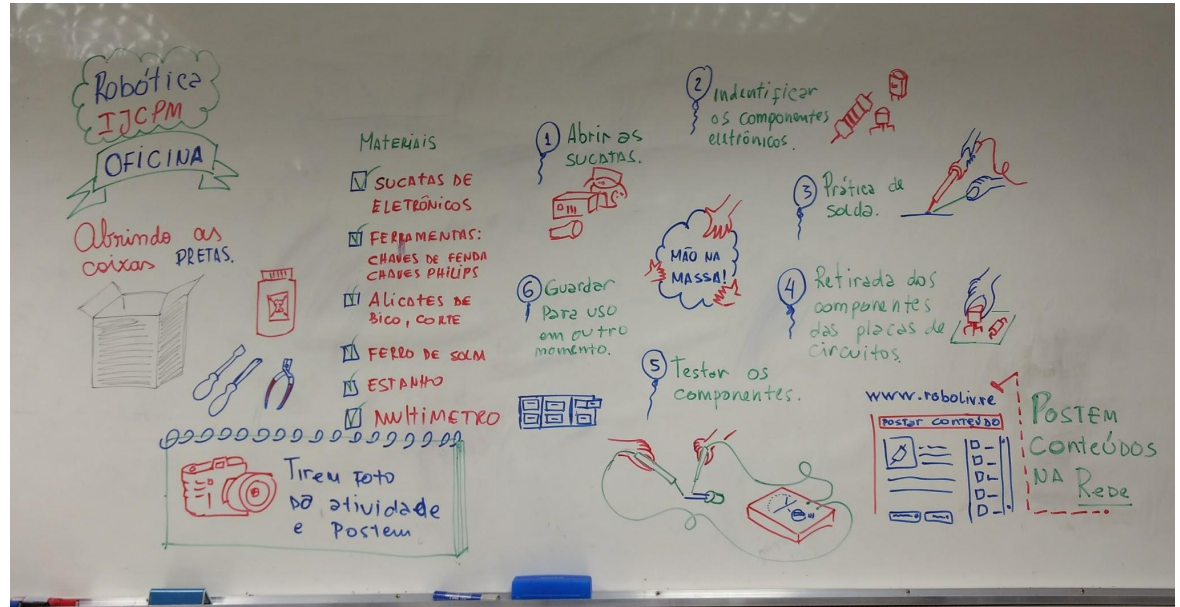 Robótica
IJCPM
OFICINA
Abrindo as
caixas PRETAS.
MATERIAIS
SUCATAS DE
ELETRÔNICOS
FERRAMENTAS:
CHAVES DE FENDA
CHAVES PHILIPS
Alicates DE
BICO, CORTE
FERRO DE SOLDA
ESTANHO
MULTIMETRO
Tirem foto
da atividade
e Postem
1 Abrir as
SUCATAS.
2 Indentificar
os componentes
eletrônicos.
3 Prática de
solda.
MÃO NA
MASSA!
4 Retirada dos
componentes
das placas de
circuitos.
5 Testar os
componentes.
6 Guardar
Para uso
em outro
momento.
www.roboliv.re
POSTAR CONTEÚDO
POSTEM
CONTEÚDOS
NA REDE